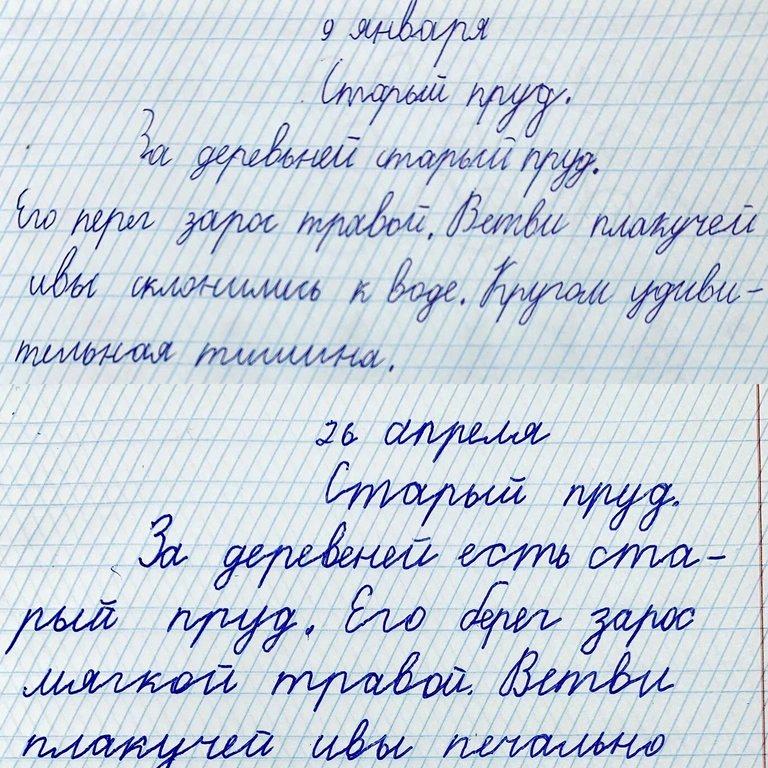 9 января
Старый пруд.
За деревьней старый пруд.
Его перег зарос травой. Ветви плакучей
ивы склонились к воде. Кругом удиви-
тельная тишина.
26 апреля
Старый пруд.
За деревеней есть ста-
рый пруд. Его берег зарос
мягкой травой. Ветви
плакучей ивы печально